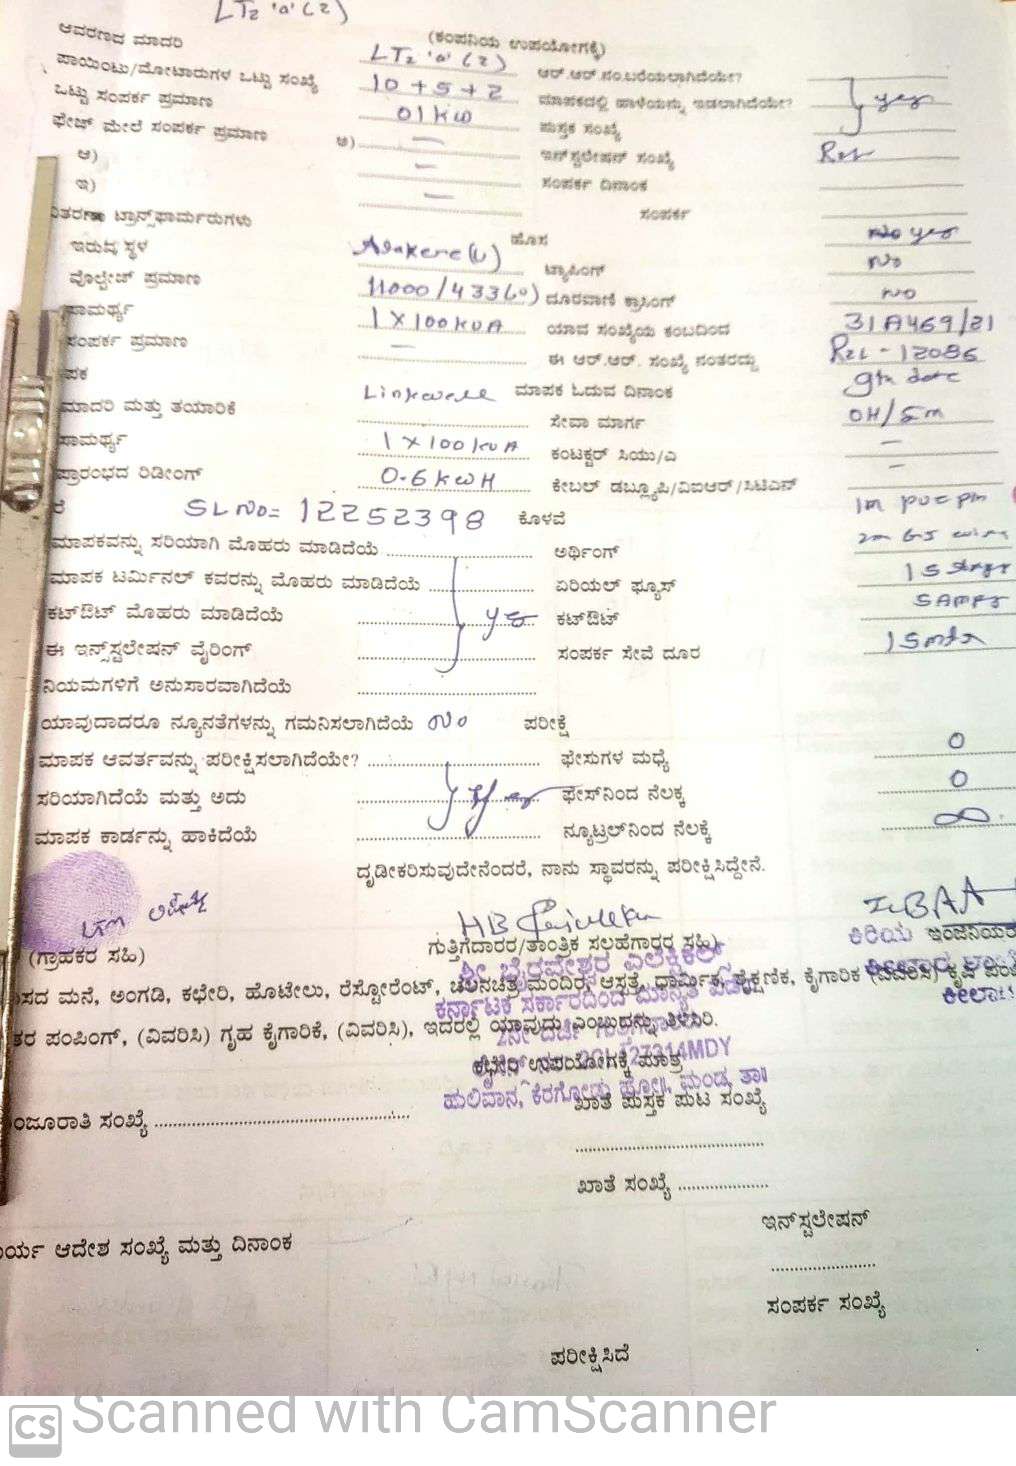 LT2 'a' (2)
(ಕಂಪನಿಯ ಉಪಯೋಗಕ್ಕೆ)
ಆವರಣದ ಮಾದರಿ LT2 'a' (2) ಆರ್.ಆರ್.ನಂ.ಬರೆಯಲಾಗಿದೆಯೇ?
ಪಾಯಿಂಟು/ಮೋಟಾರುಗಳ ಒಟ್ಟು ಸಂಖ್ಯೆ 10 + 5 + 2 ಮಾಪಕದಲ್ಲಿ ಹಾಳೆಯನ್ನು ಇಡಲಾಗಿದೆಯೇ? yes
ಒಟ್ಟು ಸಂಪರ್ಕ ಪ್ರಮಾಣ 01 KW ಪುಸ್ತಕ ಸಂಖ್ಯೆ
ಫೇಜ್ ಮೇಲೆ ಸಂಪರ್ಕ ಪ್ರಮಾಣ ಅ) — ಇನ್‌ಸ್ಟಲೇಷನ್ ಸಂಖ್ಯೆ
ಆ) — ಸಂಪರ್ಕ ದಿನಾಂಕ
ಇ) — ಸಂಪರ್ಕ
ವಿತರಣಾ ಟ್ರಾನ್ಸ್‌ಫಾರ್ಮರುಗಳು ಹೊಸ yes
ಇರುವ ಸ್ಥಳ ಟ್ಯಾಪಿಂಗ್ No
ವೋಲ್ಟೇಜ್ ಪ್ರಮಾಣ 11000/433 ದೂರವಾಣಿ ಕ್ರಾಸಿಂಗ್ NO
ಸಾಮರ್ಥ್ಯ 1 X 100 KVA ಯಾವ ಸಂಖ್ಯೆಯ ಕಂಬದಿಂದ 31A469/21
ಸಂಪರ್ಕ ಪ್ರಮಾಣ — ಈ ಆರ್.ಆರ್. ಸಂಖ್ಯೆ ನಂತರದ್ದು
ಪಕ Linkwell ಮಾಪಕ ಓದುವ ದಿನಾಂಕ 9th date
ಮಾದರಿ ಮತ್ತು ತಯಾರಿಕೆ ಸೇವಾ ಮಾರ್ಗ OH/5m
ಸಾಮರ್ಥ್ಯ 1 X 100 KVA ಕಂಟಕ್ಟರ್ ಸಿಯು/ಎ —
ಪ್ರಾರಂಭದ ರಿಡೀಂಗ್ 0.6 KWH ಕೇಬಲ್ ಡಬ್ಲ್ಯೂಪಿ/ವಿಐಆರ್/ಸಿಟಿಎನ್ —
ರೆ SL NO= 12252398 ಕೊಳವೆ
ಮಾಪಕವನ್ನು ಸರಿಯಾಗಿ ಮೊಹರು ಮಾಡಿದೆಯೆ ಅರ್ಥಿಂಗ್
ಮಾಪಕ ಟರ್ಮಿನಲ್ ಕವರನ್ನು ಮೊಹರು ಮಾಡಿದೆಯೆ ಏರಿಯಲ್ ಫ್ಯೂಸ್
ಕಟ್‌ಔಟ್ ಮೊಹರು ಮಾಡಿದೆಯೆ yes ಕಟ್‌ಔಟ್
ಈ ಇನ್ಸ್‌ಸ್ಟಲೇಷನ್ ವೈರಿಂಗ್ ಸಂಪರ್ಕ ಸೇವೆ ದೂರ
ನಿಯಮಗಳಿಗೆ ಅನುಸಾರವಾಗಿದೆಯೆ
ಯಾವುದಾದರೂ ನ್ಯೂನತೆಗಳನ್ನು ಗಮನಿಸಲಾಗಿದೆಯೆ No ಪರೀಕ್ಷೆ
ಮಾಪಕ ಆವರ್ತವನ್ನು ಪರೀಕ್ಷಿಸಲಾಗಿದೆಯೇ? ಫೇಸುಗಳ ಮಧ್ಯೆ 0
ಸರಿಯಾಗಿದೆಯೆ ಮತ್ತು ಅದು ಫೇಸ್‌ನಿಂದ ನೆಲಕ್ಕೆ 0
ಮಾಪಕ ಕಾರ್ಡನ್ನು ಹಾಕಿದೆಯೆ ನ್ಯೂಟ್ರಲ್‌ನಿಂದ ನೆಲಕ್ಕೆ ∞
ದೃಡೀಕರಿಸುವುದೇನೆಂದರೆ, ನಾನು ಸ್ಥಾವರನ್ನು ಪರೀಕ್ಷಿಸಿದ್ದೇನೆ.
LTM
(ಗ್ರಾಹಕರ ಸಹಿ) ಗುತ್ತಿಗೆದಾರರ/ತಾಂತ್ರಿಕ ಸಲಹೆಗಾರರ ಸಹಿ) ಕಿರಿಯ ಇಂಜಿನಿಯರ
ಶ್ರೀ ಭೈರವೇಶ್ವರ ಎಲೆಕ್ಟ್ರಿಕಲ್
ಸದ ಮನೆ, ಅಂಗಡಿ, ಕಛೇರಿ, ಹೊಟೇಲು, ರೆಸ್ಟೋರೆಂಟ್, ಚಲನಚಿತ್ರ ಮಂದಿರ, ಆಸ್ಪತ್ರೆ, ಧಾರ್ಮಿಕ, ಶೈಕ್ಷಣಿಕ, ಕೈಗಾರಿಕ (ವಿವರಿಸಿ) ಕೃಷಿ ಪಂಪ
ಕರ್ನಾಟಕ ಸರ್ಕಾರದಿಂದ ಮಾನ್ಯತೆ ಪಡೆದ
ತರ ಪಂಪಿಂಗ್, (ವಿವರಿಸಿ) ಗೃಹ ಕೈಗಾರಿಕೆ, (ವಿವರಿಸಿ), ಇದರಲ್ಲಿ ಯಾವುದು ಎಂಬುದನ್ನು ತಿಳಿಸಿರಿ.
ಕಛೇರಿ ಉಪಯೋಗಕ್ಕೆ ಮಾತ್ರ
ಹುಲಿವಾನ, ಕೆರಗೋಡು ಹೋ॥, ಮಂಡ್ಯ ತಾ॥
ಖಾತೆ ಪುಸ್ತಕ ಪುಟ ಸಂಖ್ಯೆ
ಂಜೂರಾತಿ ಸಂಖ್ಯೆ
ಖಾತೆ ಸಂಖ್ಯೆ
ಇನ್‌ಸ್ಟಲೇಷನ್
ಾರ್ಯ ಆದೇಶ ಸಂಖ್ಯೆ ಮತ್ತು ದಿನಾಂಕ
ಸಂಪರ್ಕ ಸಂಖ್ಯೆ
ಪರೀಕ್ಷಿಸಿದೆ
CS Scanned with CamScanner